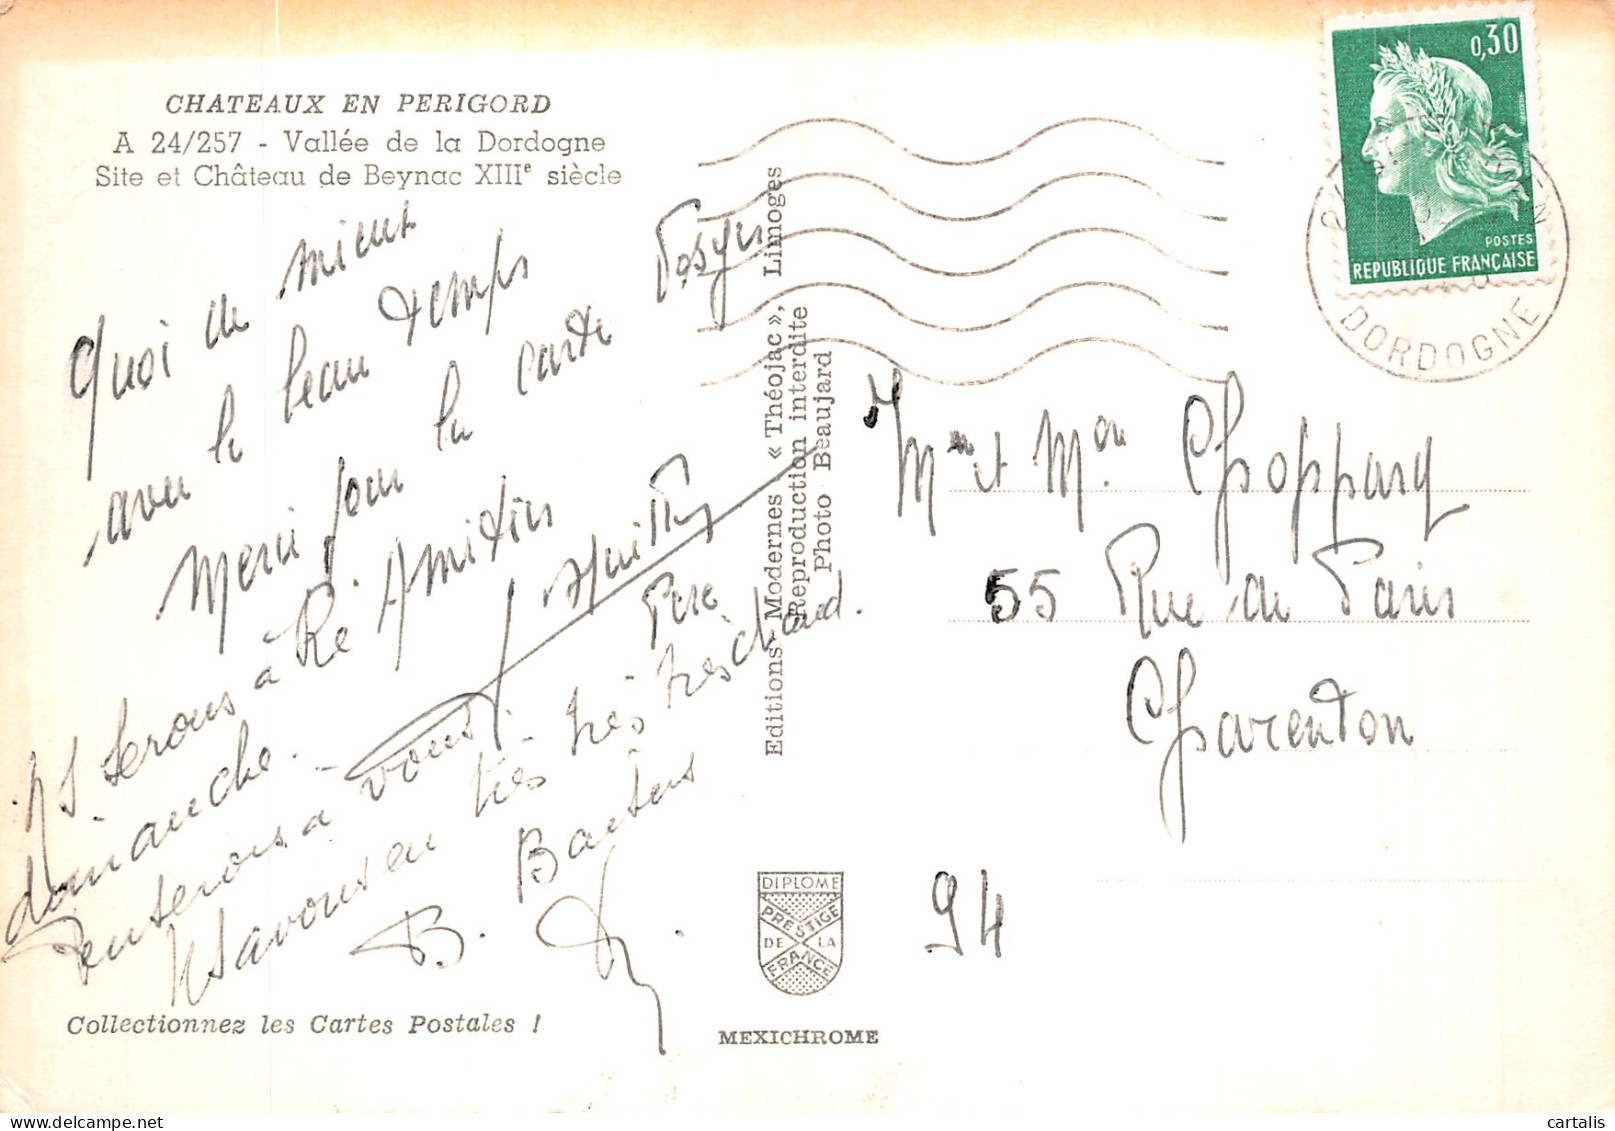 CHATEAUX EN PERIGORD
A 24/257 - Vallée de la Dordogne
Site et Château de Beynac XIIIe siècle
Quoi de mieux
avec le beau temps
Merci pour la carte Vosges
Amitiés
Père
Ns serons à Ré
dimanche.
Penserons à vous!
Ns avons eu très très très chaud.
Baisers
B.
Collectionnez les Cartes Postales !
Editions Modernes « Théojac », Limoges
Reproduction interdite
Photo Beaujard
DIPLOME
PRESTIGE
DE LA
FRANCE
MEXICHROME
0,30
POSTES
REPUBLIQUE FRANÇAISE
DORDOGNE
Mme et Mon Choppard
55 Rue de Paris
Charenton
94
cartalis